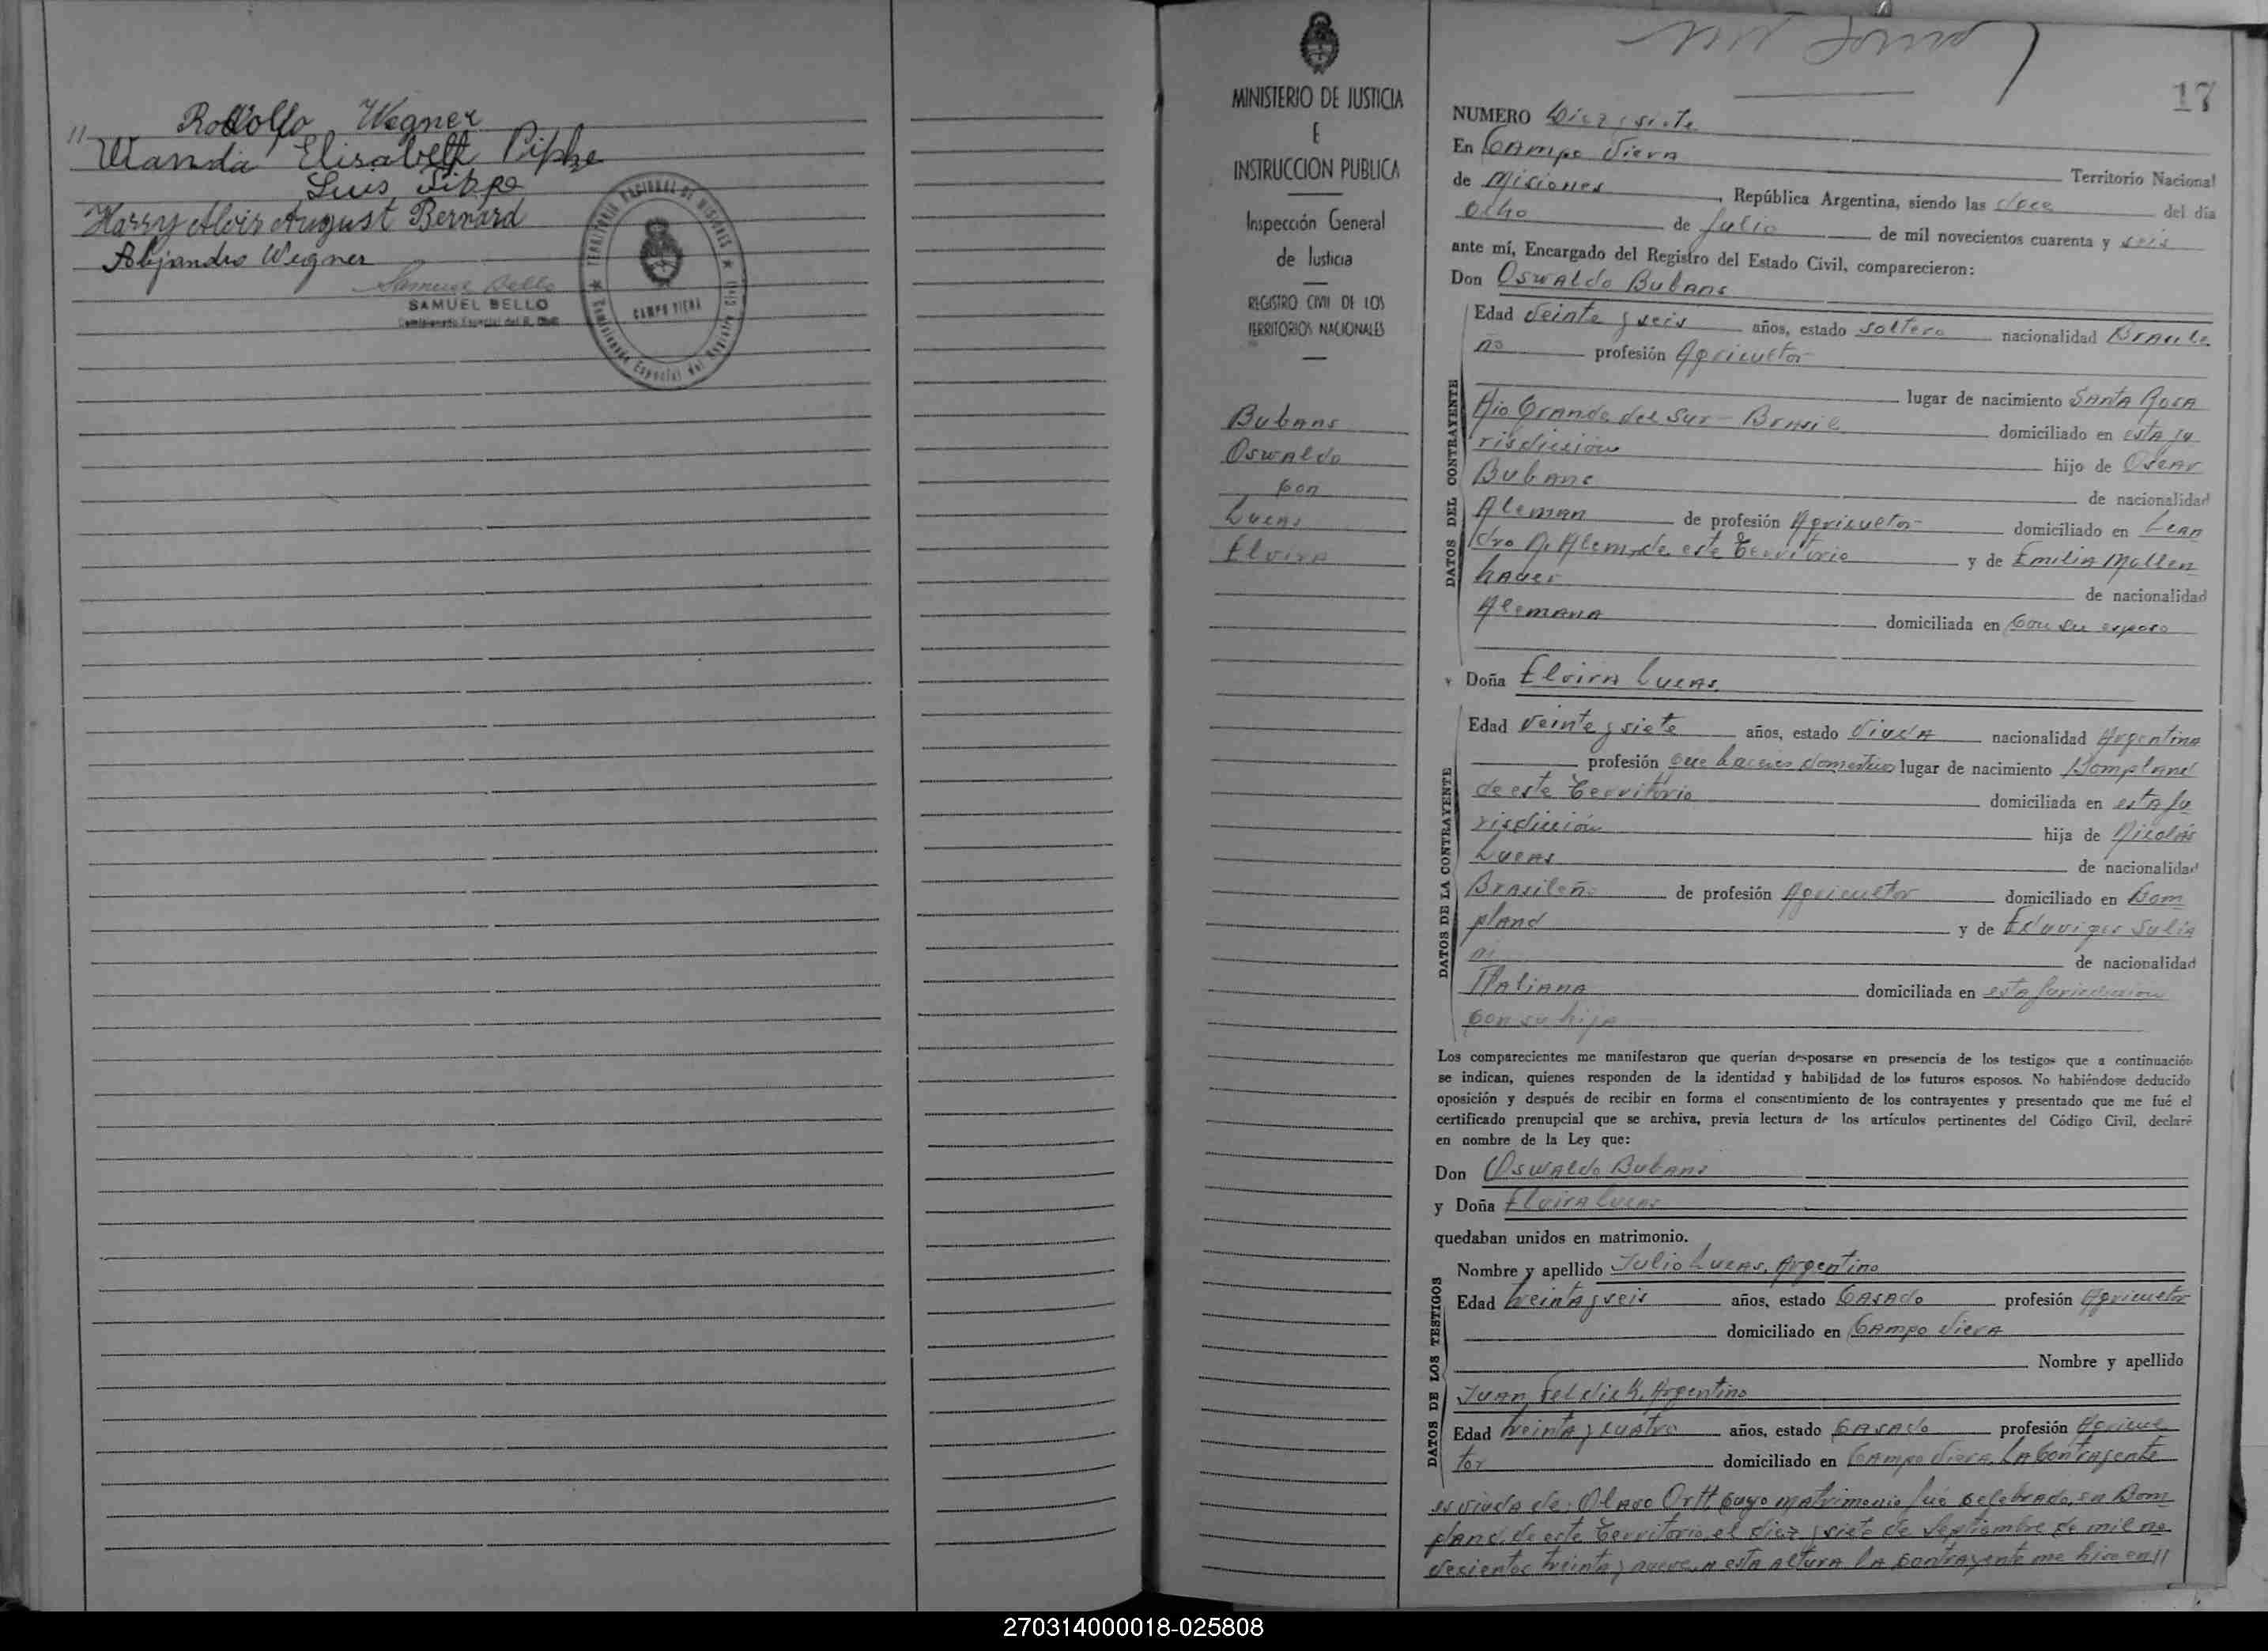 Rodolfo Wegner
" Wanda Elisabeth Pipke
Luis Pipke
Harry Alvis August Bernard
Alejandro Wegner
Samuel Bello
SAMUEL BELLO
Comisionado Especial del R. Civil
★ TERRITORIO NACIONAL DE MISIONES ★
CAMPO VIERA
Comisionado Especial del Registro Civil
MINISTERIO DE JUSTICIA
E
INSTRUCCION PUBLICA
Inspección General
de Justicia
REGISTRO CIVIL DE LOS
TERRITORIOS NACIONALES
Bubans
Oswaldo
con
Lucas
Elvira
17
NUMERO Diez y siete
En Campo Viera
Territorio Nacional
de Misiones, República Argentina, siendo las doce del día
ocho de Julio de mil novecientos cuarenta y seis
ante mí, Encargado del Registro del Estado Civil, comparecieron:
Don Oswaldo Bubans
DATOS DEL CONTRAYENTE
Edad Veinte y seis años, estado soltero nacionalidad Brasile
ño profesión Agricultor
lugar de nacimiento Santa Rosa
Rio Grande del Sur - Brasil domiciliado en esta ju
risdicción hijo de Oscar
Bubans de nacionalidad
Aleman de profesión Agricultor domiciliado en Lean
dro N. Alem, de este Territorio y de Emilia Mollen
hauer de nacionalidad
Alemana domiciliada en con su esposo
y Doña Elvira Lucas
DATOS DE LA CONTRAYENTE
Edad Veinte y siete años, estado Viuda nacionalidad Argentina
profesión que haceres domésticos lugar de nacimiento Bompland
de este Territorio domiciliada en esta ju
risdicción hija de Nicolás
Lucas de nacionalidad
Brasileño de profesión Agricultor domiciliado en Bom
pland y de Eduviges Sulia
ni de nacionalidad
Italiana domiciliada en esta jurisdicción
con su hija
Los comparecientes me manifestaron que querían desposarse en presencia de los testigos que a continuación
se indican, quienes responden de la identidad y habilidad de los futuros esposos. No habiéndose deducido
oposición y después de recibir en forma el consentimiento de los contrayentes y presentado que me fué el
certificado prenupcial que se archiva, previa lectura de los artículos pertinentes del Código Civil, declaré
en nombre de la Ley que:
Don Oswaldo Bubans
y Doña Elvira Lucas
quedaban unidos en matrimonio.
DATOS DE LOS TESTIGOS
Nombre y apellido Julio Lucas, Argentino
Edad treinta y seis años, estado Casado profesión Agricultor
domiciliado en Campo Viera
Nombre y apellido
Juan Feldick, Argentino
Edad treinta y cuatro años, estado Casado profesión Agricul
tor domiciliado en Campo Viera. La contrayente
es viuda de: Olavo Ortt cuyo matrimonio fué celebrado, en Bom
pland, de este Territorio, el diez y siete de Septiembre de mil no
vecientos treinta y nueve, a esta altura la contrayente me hise en//
270314000018-025808